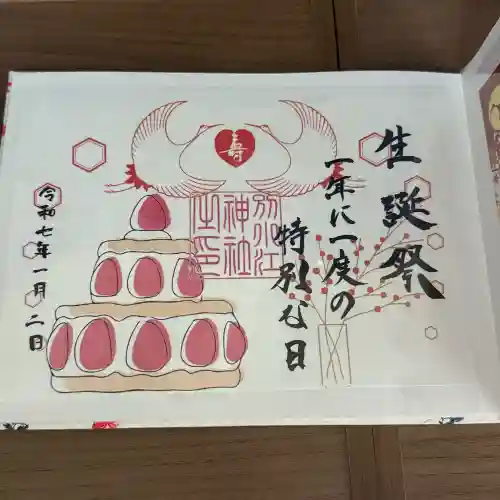 生誕祭
一年に一度の
特別な日
寿
別小江
神社
之印
令和七年一月二日